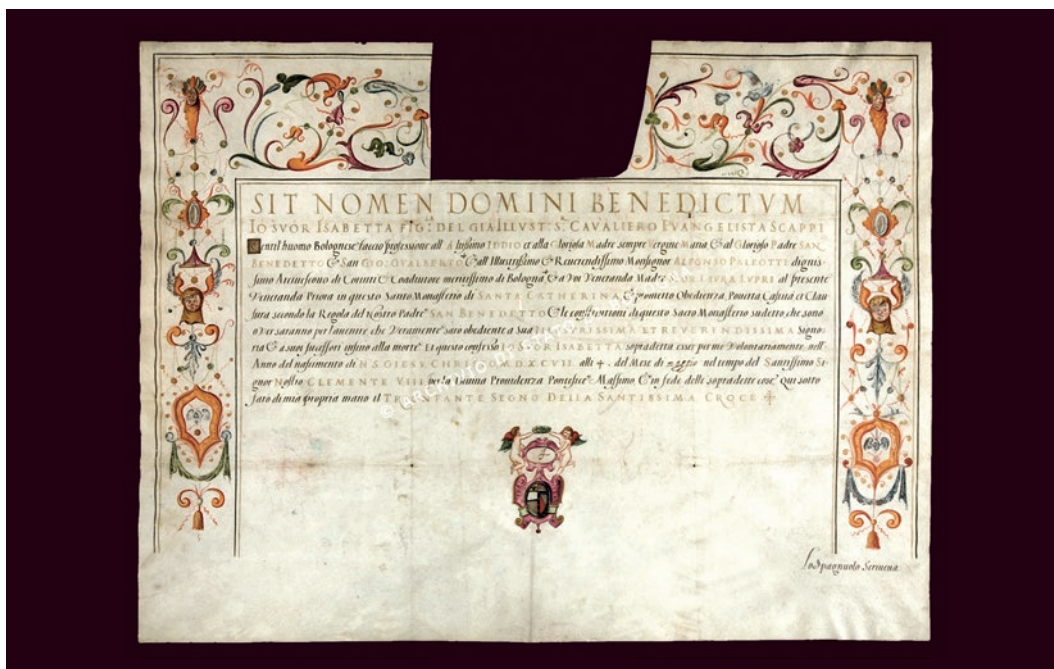 SIT NOMEN DOMINI BENEDICTVM
IO SVOR ISABETTA FIG: DEL GIA ILLVST: S: CAVALIERO EVANGELISTA SCAPPI
Gentil'huomo Bolognese faccio professione all' Altissimo IDDIO et alla Gloriosa Madre sempre Vergine Maria, & al Glorioso Padre SAN
BENEDETTO & SAN GIO: GVALBERTO & all' Illustrissimo & Reuerendissimo Monsignor ALFONSO PALEOTTI dignis-
simo Arciuescouo di Corinto Coadiutore meritissimo di Bologna & a Voi Veneranda Madre SVOR LAVRA LVPRI al presente
Veneranda Priora in questo Santo Monasterio di SANTA CATHERINA & prometto Obedienza, Pouerta Castita et Clau
sura secondo la Regola del Nostro Padre SAN BENEDETTO & le constitutioni di questo Sacro Monasterio sudetto che sono
o ver saranno per l'auenire che Veramente saro obediente a Sua ILLVSTRISSIMA ET REVERENDISSIMA Signo-
ria & a suoi sucessori insino alla morte Et questo confesso IO SVOR ISABETTA sopradetta esser per me Volontariamente nell'
Anno del nascimento di N.S. GIESV CHRISTO M.D.XCVII. alli 4. del Mese di nel tempo del Santissimo Si
gnor Nostro CLEMENTE VIII per la Diuina Prouidenza Pontefice Massimo & in fede delle sopradette cose Qui sotto
faro di mia propria mano il TRIONFANTE SEGNO DELLA SANTISSIMA CROCE
Lo Spagnuolo Scriueua